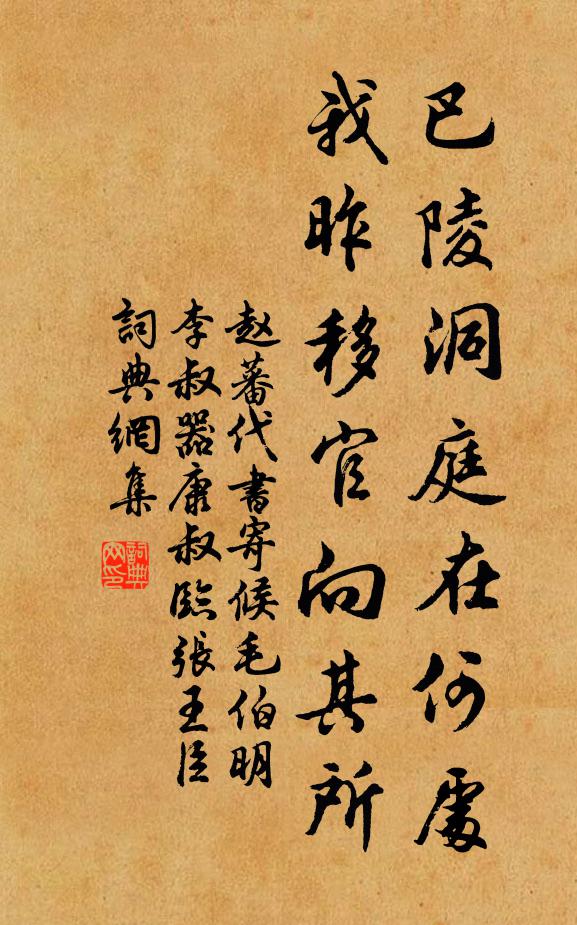 巴陵洞庭在何處
我昨移官向其所
赵蕃代書寄候毛伯明
李叔器康叔臨張王臣
詞典網集
詞典網印